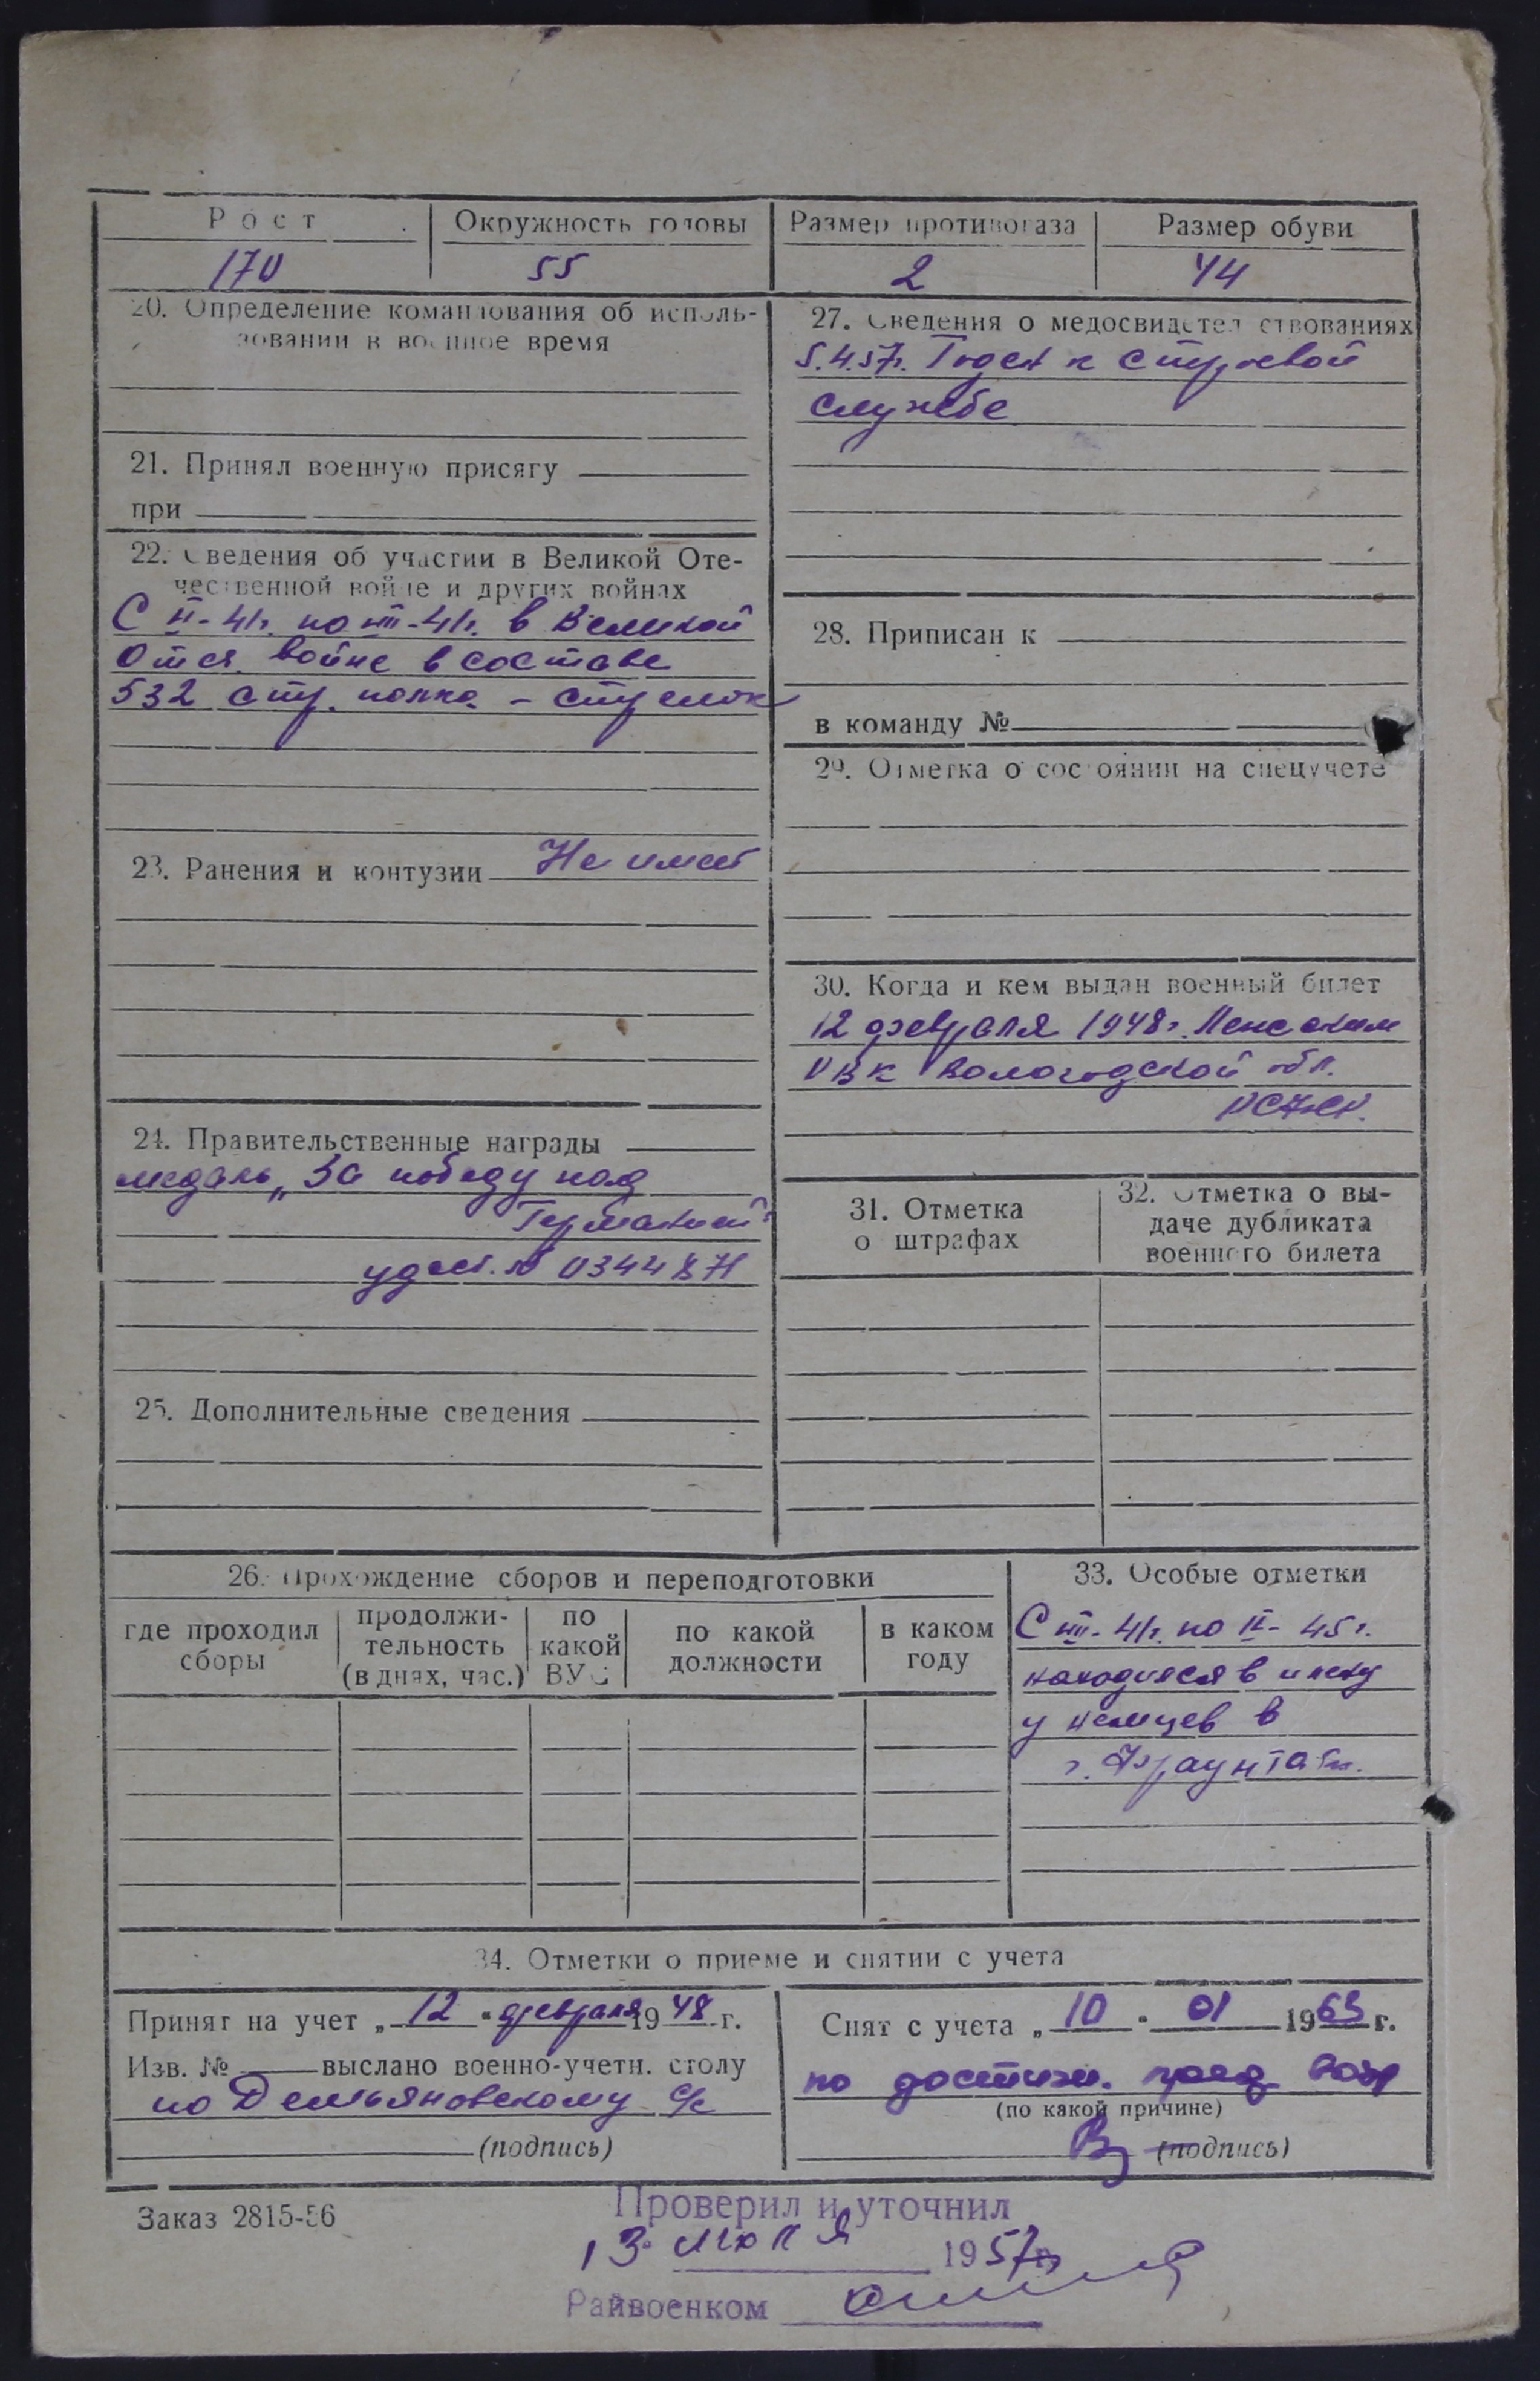 Рост
Окружность головы
Размер противогаза
Размер обуви
170
55
2
44
20. Определение командования об исполь-
зовании в военное время
21. Принял военную присягу
при
22. Сведения об участии в Великой Оте-
чественной войне и других войнах
С VI-41г. по VIII-41г. в Великой
Отеч. войне в составе
532 стр. полка - стрелок
23. Ранения и контузии Не имеет
24. Правительственные награды
медаль „За победу над
Германией"
удост. №
25. Дополнительные сведения
27. Сведения о медосвидетельствованиях
5.4.57г. Годен к строевой
службе
28. Приписан к
в команду №
29. Отметка о состоянии на спецучете
30. Когда и кем выдан военный билет
12 февраля 1948г.
РВК Вологодской обл.
31. Отметка
о штрафах
32. Отметка о вы-
даче дубликата
военного билета
26. Прохождение сборов и переподготовки
где проходил
сборы
продолжи-
тельность
(в днях, час.)
по
какой
ВУС
по какой
должности
в каком
году
33. Особые отметки
С VIII-41г. по IV-45г.
находился в плену
у немцев в
г.
34. Отметки о приеме и снятии с учета
Принят на учет „12" февраля 1948 г.
Изв. № выслано военно-учетн. столу
по Демьяновскому с/с
(подпись)
Снят с учета „10" 01 1963 г.
по достиж. пред. возр
(по какой причине)
(подпись)
Заказ 2815-56
Проверил и уточнил
13 июля 1957г.
Райвоенком